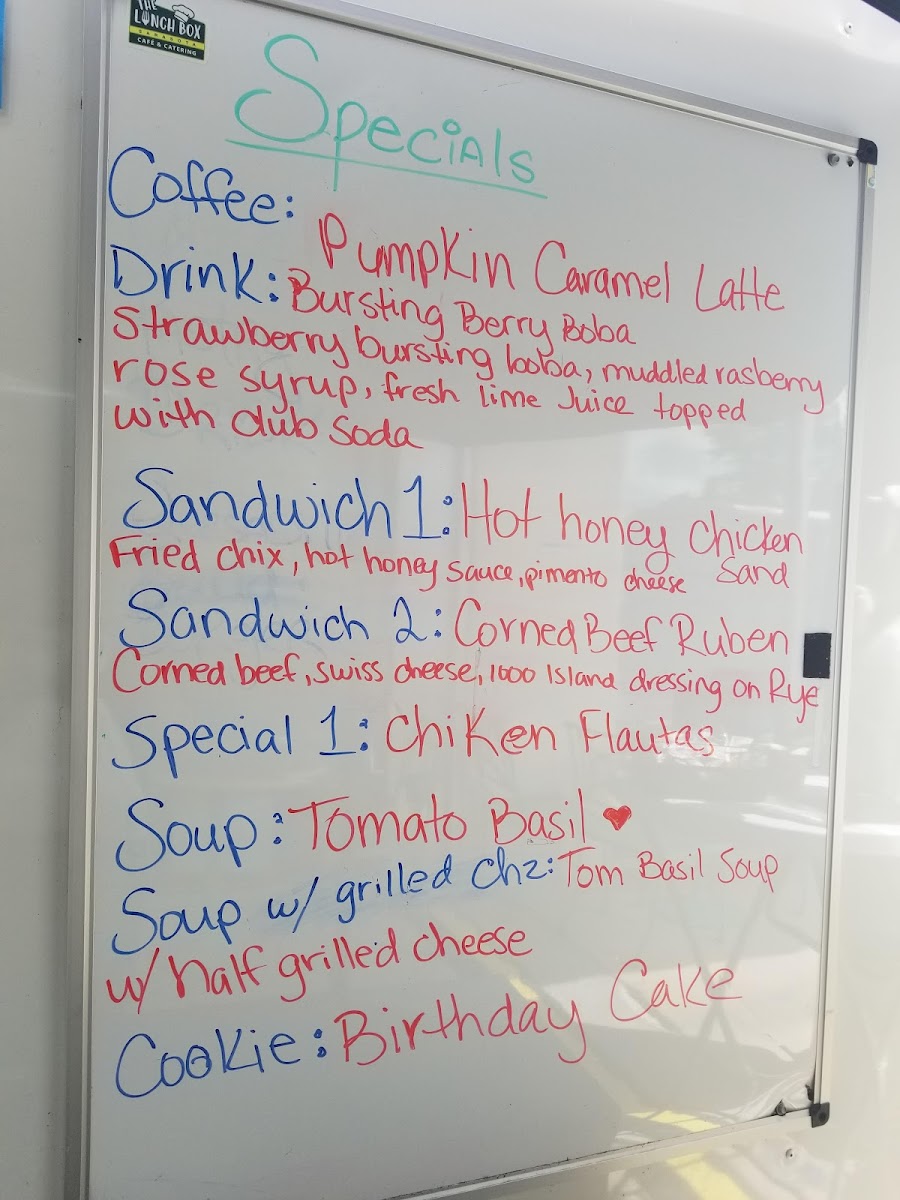 THE
LUNCH BOX
SARASOTA
CAFÉ & CATERING
Specials
Coffee:
Pumpkin Caramel Latte
Drink: Bursting Berry Boba
Strawberry bursting boba, muddled rasberry
rose syrup, fresh lime Juice topped
with club Soda
Sandwich 1: Hot honey chicken
Sand
Fried chix, hot honey sauce, pimento cheese
Sandwich 2: Corned Beef Ruben
Corned beef, swiss cheese, 1000 Island dressing on Rye
Special 1: Chiken Flautas
Soup: Tomato Basil ♥
Soup w/ grilled chz: Tom Basil Soup
w/ half grilled cheese
Cookie: Birthday Cake